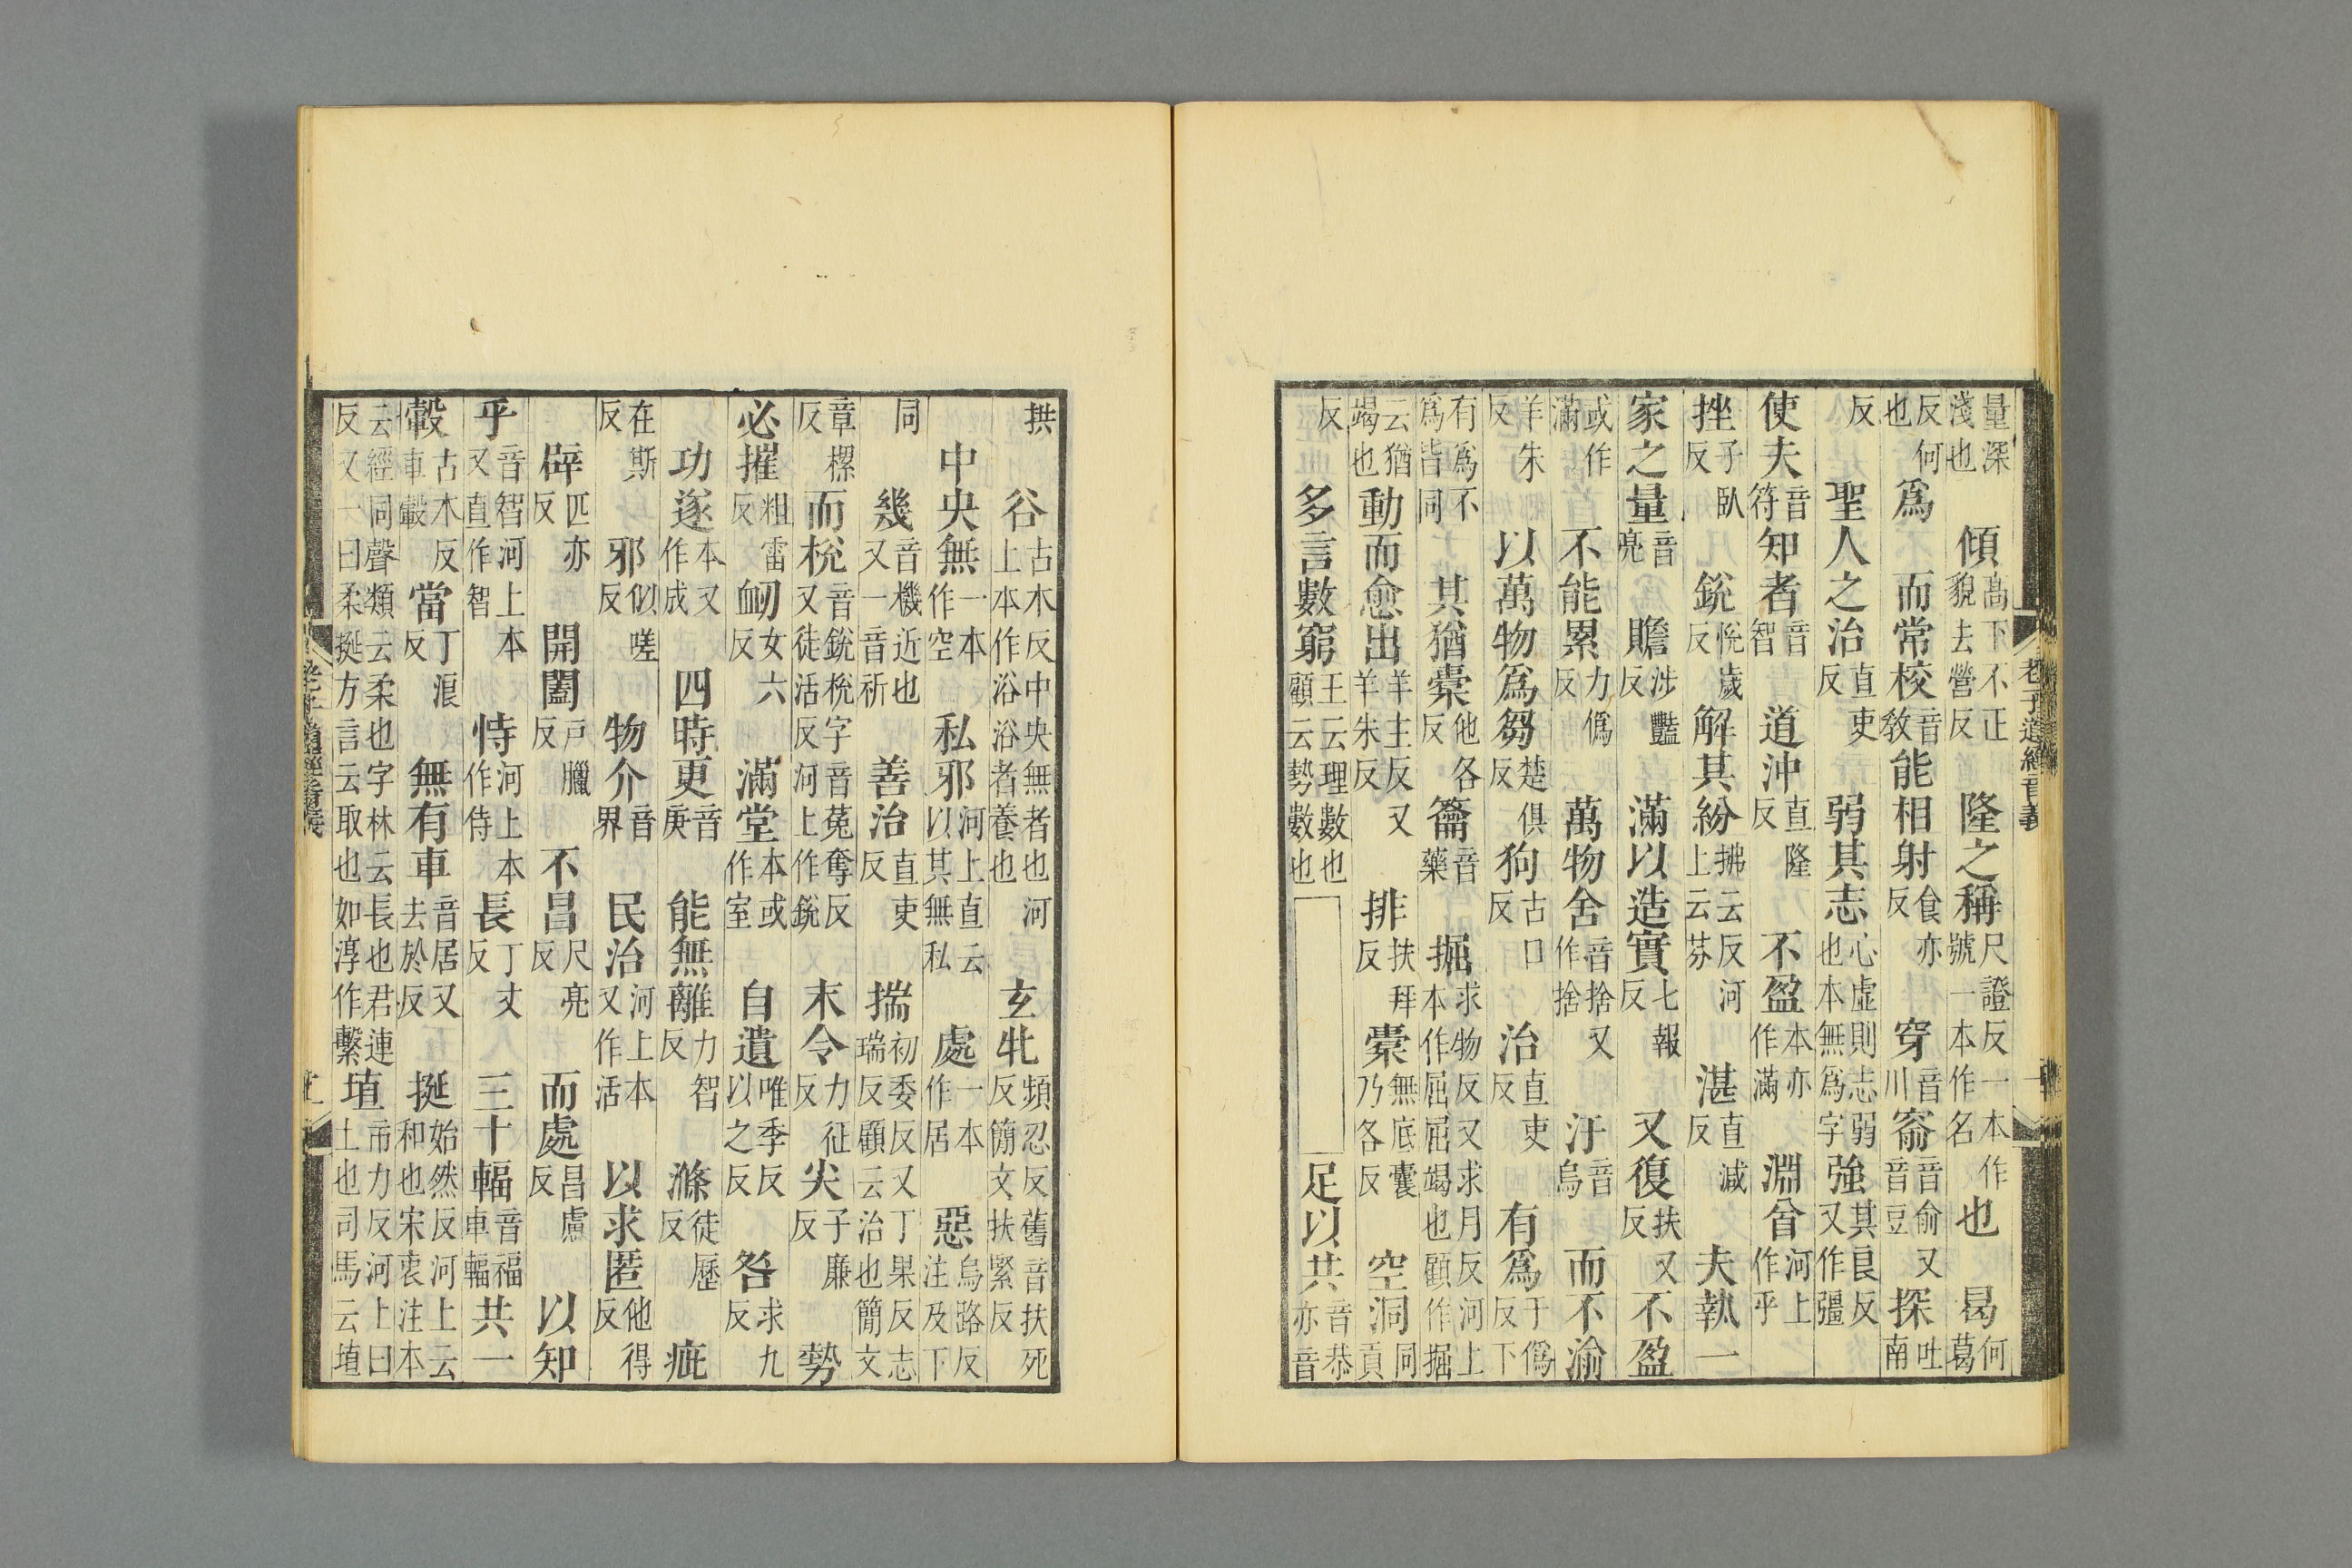 量深淺也傾高下不正貌去營反隆之稱尺證反一本作號一本作名也曷何葛
反何也為而常校音教能相射食亦反穿音川窬音俞又音豆探吐南
反聖人之治直吏反弱其志心虛則志弱也本無為字強其良反又作彊
使夫音符知者音智道沖直隆反不盈本亦作滿淵兮河上作乎
挫子臥反銳悅歲反解其紛拂云反河上云芬湛直減反夫執一
家之量音亮贍涉豔反滿以造實七報反又復扶又反不盈
或作滿不能累力偽反萬物舍音捨又作捨汙音烏而不渝
羊朱反以萬物為芻楚俱反狗古口反治直吏反有為于偽反下
有為不為皆同其猶橐他各反籥音藥掘求物反又求月反河上本作屈屈竭也顧作掘
云猶竭也動而愈出羊主反又羊朱反排扶拜反橐無底囊乃各反空洞同貢
反多言數窮王云理數也顧云勢數也足以共音恭亦音
老子道經音義
拱谷古木反中央無者也河上本作浴浴者養也玄牝頻忍反舊音扶死反簡文扶緊反
中央無一本作空私邪河上直云以其無私處一本作居惡烏路反注及下
同幾音機近也又一音祈善治直吏反揣初委反又丁果反志瑞反顧云治也簡文
章樏反而梲音銳梲字音菟奪反又徒活反河上作銳末令力征反尖子廉反勢
必摧粗雷反衂女六反滿堂本或作室自遺唯季反以之反咎求九反
功遂本又作成四時更音庚能無離力智反滌徒歷反疵
在斯反邪似嗟反物介音界民治河上本又作活以求匿他得反
辟匹亦反開闔戶臘反不昌尺亮反而處昌慮反以知
乎音智河上本又直作智恃河上本作侍長丁丈反三十輻音福車輻共一
轂古木反車轂當丁浪反無有車音居又去於反挻始然反河上云和也宋衷注本
云經同聲類云柔也字林云長也君連反又一曰柔挻方言云取也如淳作繫埴市力反河上曰土也司馬云埴